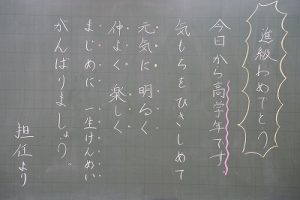 進級おめでとう
今日から高学年です
気もちをひきしめて
元気に 明るく
仲よく 楽しく
まじめに 一生けんめい
がんばりましょう。
担任より